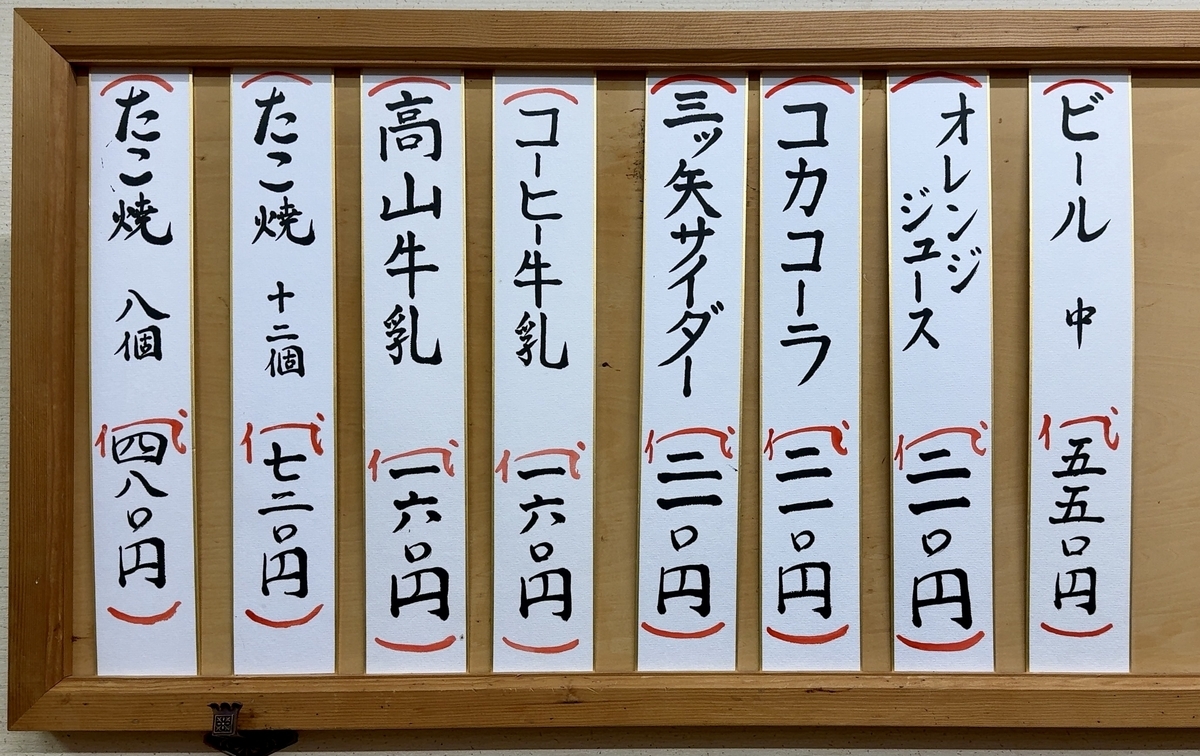 ビール 中 五五〇円
オレンジ
ジュース 二一〇円
コカコーラ 二一〇円
三ッ矢サイダー 二一〇円
コーヒー牛乳 一六〇円
高山牛乳 一六〇円
たこ焼 十二個 七二〇円
たこ焼 八個 四八〇円